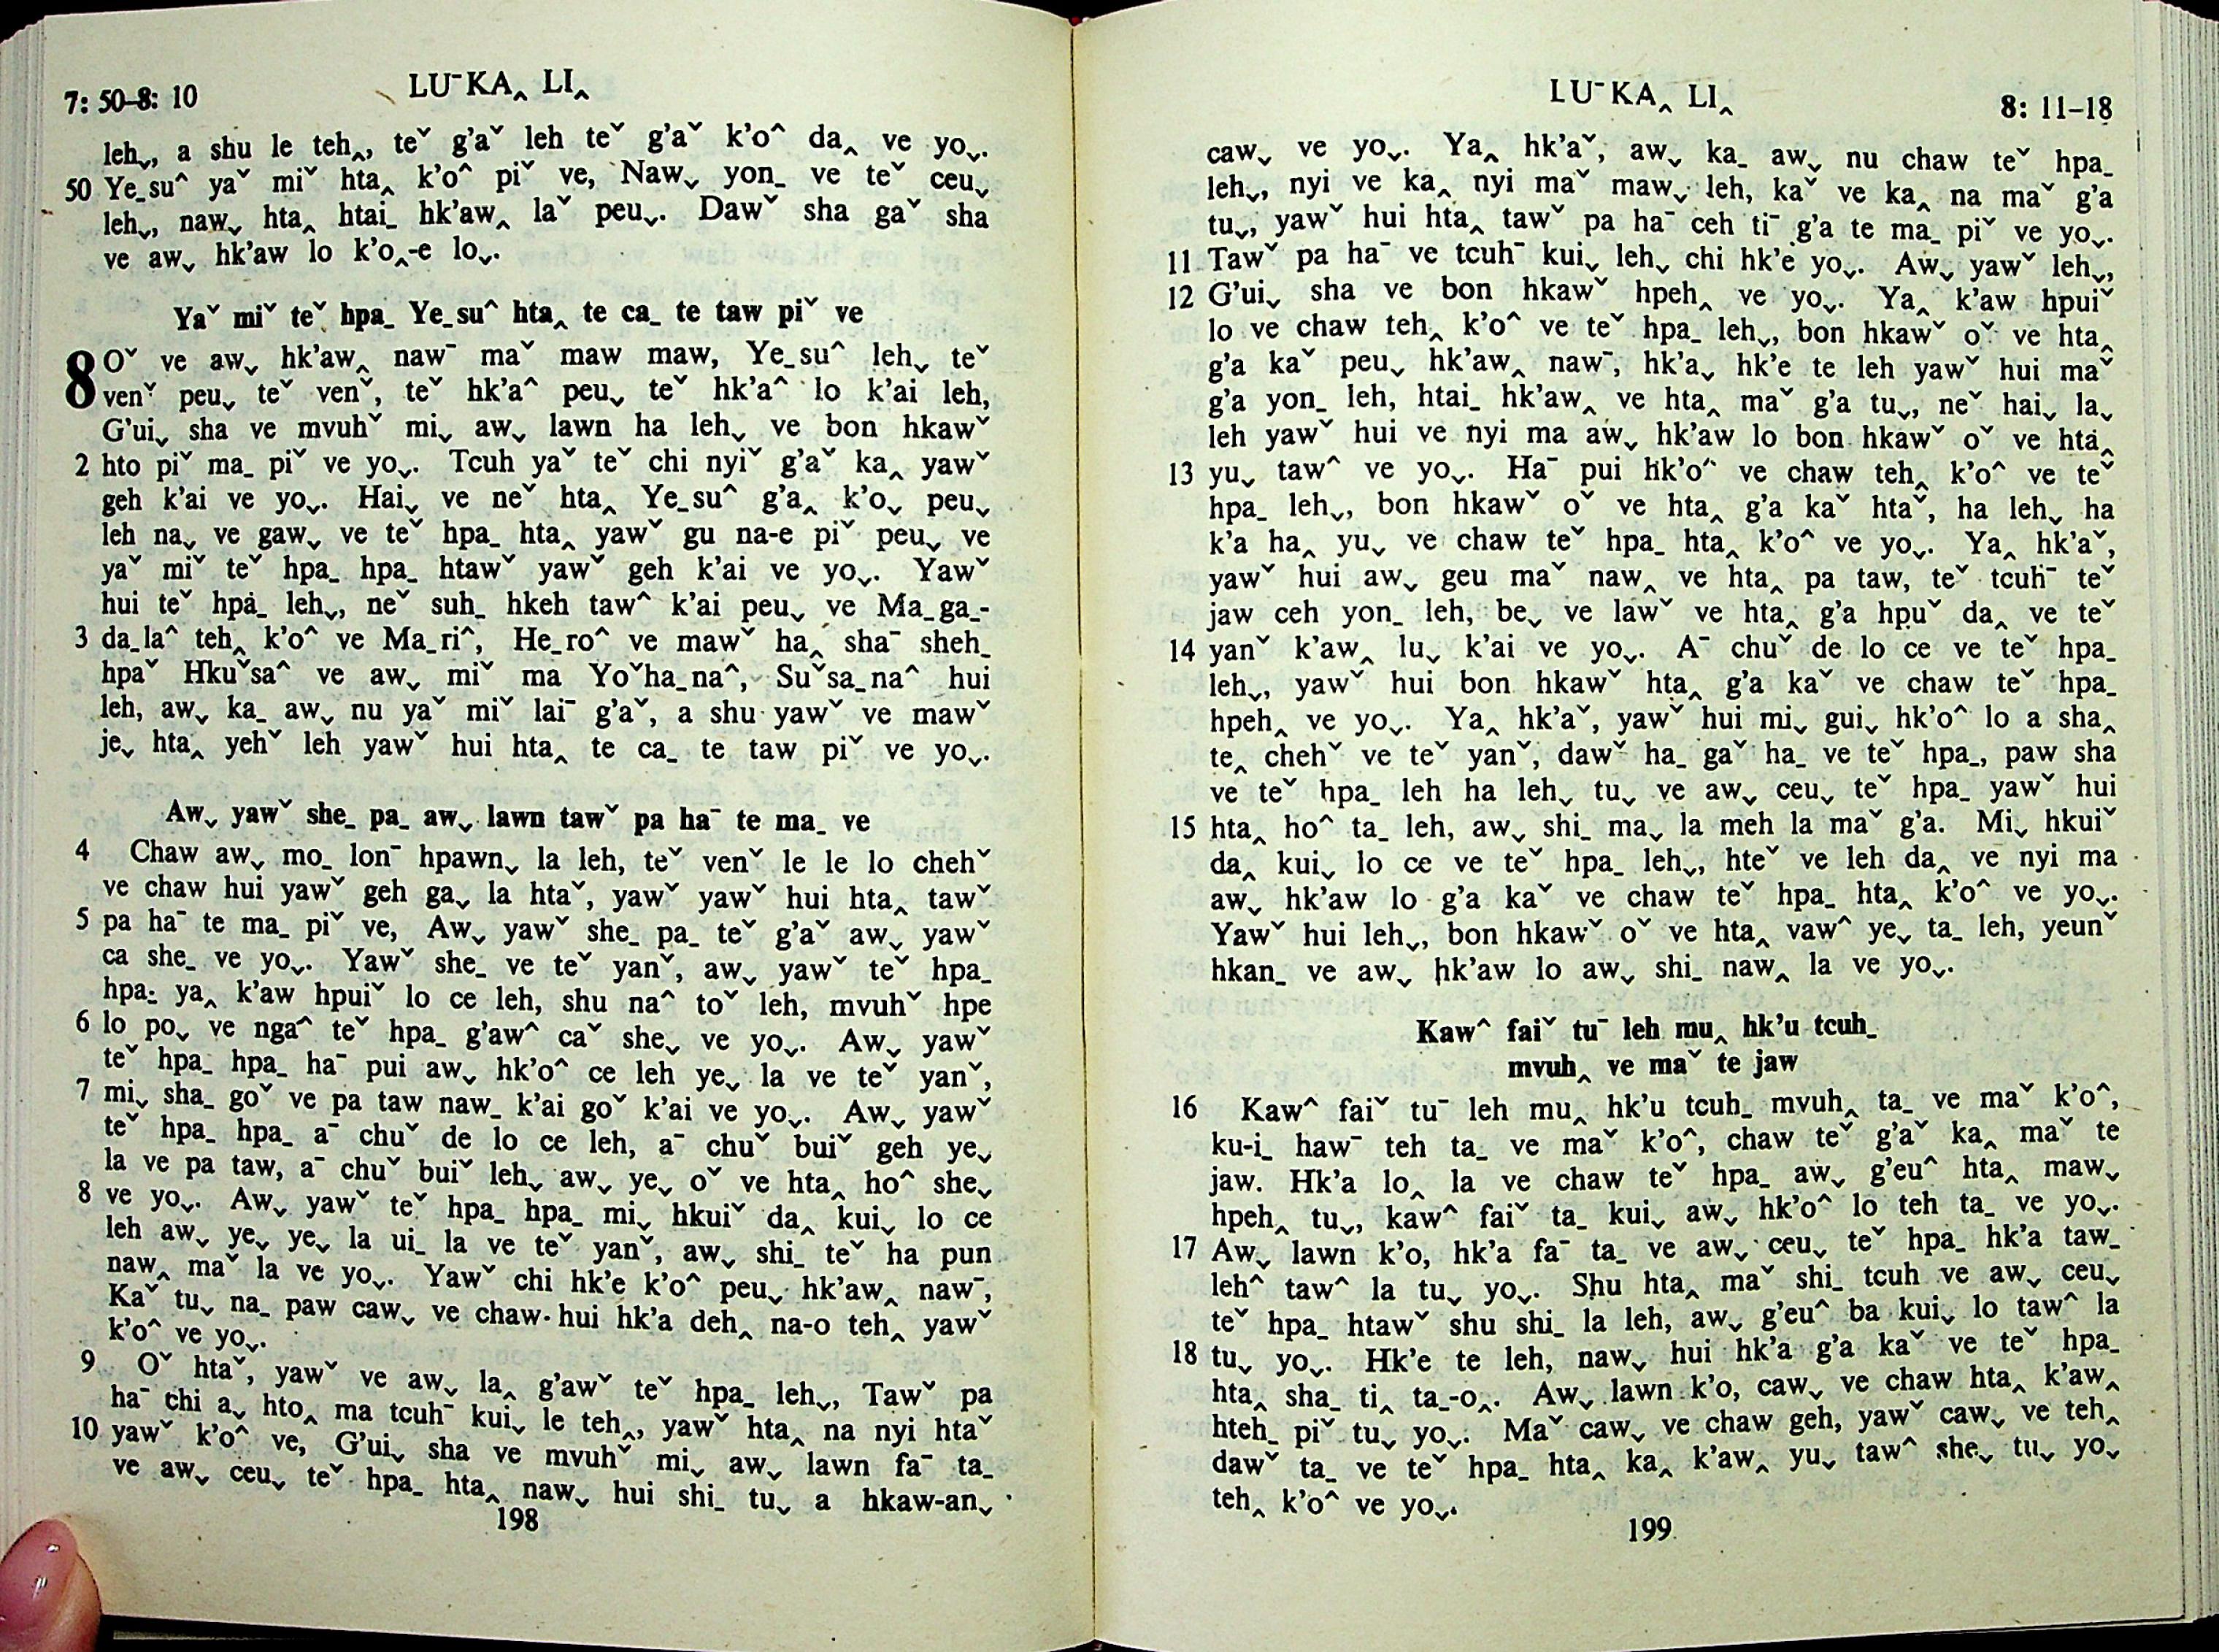 7: 50–8: 10
LUˉKA‸ LI‸
leh˯, a shu le teh‸, teˇ g’aˇ leh teˇ g’aˇ k’o^ da‸ ve yo˯.
50 Ye_su^ yaˇ miˇ hta‸ k’o^ piˇ ve, Naw˯ yon_ ve teˇ ceu˯
leh˯, naw˯ hta‸ htai_ hk’aw‸ laˇ peu˯. Dawˇ sha gaˇ sha
ve aw˯ hk’aw lo k’o‸-e lo˯.
Yaˇ miˇ teˇ hpa_ Ye_su^ hta‸ te ca_ te taw piˇ ve
8 Oˇ ve aw˯ hk’aw‸ nawˉ maˇ maw maw, Ye_su^ leh˯ teˇ
venˇ peu˯ teˇ venˇ, teˇ hk’a^ peu˯ teˇ hk’a^ lo k’ai leh,
G’ui˯ sha ve mvuhˇ mi˯ aw˯ lawn ha leh˯ ve bon hkawˇ
2 hto piˇ ma_ piˇ ve yo˯. Tcuh yaˇ teˇ chi nyiˇ g’aˇ ka‸ yawˇ
geh k’ai ve yo˯. Hai˯ ve neˇ hta‸ Ye_su^ g’a‸ k’o˯ peu˯
leh na˯ ve gaw˯ ve teˇ hpa_ hta‸ yawˇ gu na-e piˇ peu˯ ve
yaˇ miˇ teˇ hpa_ hpa_ htawˇ yawˇ geh k’ai ve yo˯. Yawˇ
hui teˇ hpa_ leh˯, neˇ suh_ hkeh taw^ k’ai peu˯ ve Ma_ga_-
3 da_la^ teh‸ k’o^ ve Ma_ri^, He_ro^ ve mawˇ ha‸ shaˉ sheh_
hpaˇ Hkuˇsa^ ve aw˯ miˇ ma Yoˇha_na^, Suˇsa_na^ hui
leh, aw˯ ka_ aw˯ nu yaˇ miˇ laiˉ g’aˇ, a shu yawˇ ve mawˇ
je˯ hta‸ yehˇ leh yawˇ hui hta‸ te ca_ te taw piˇ ve yo˯.
Aw˯ yawˇ she_ pa_ aw˯ lawn tawˇ pa haˉ te ma_ ve
4 Chaw aw˯ mo_ lonˉ hpawn˯ la leh, teˇ venˇ le le lo chehˇ
ve chaw hui yawˇ geh ga˯ la htaˇ, yawˇ yawˇ hui hta‸ tawˇ
5 pa haˉ te ma_ piˇ ve, Aw˯ yawˇ she_ pa_ teˇ g’aˇ aw˯ yawˇ
ca she_ ve yo˯. Yawˇ she_ ve teˇ yanˇ, aw˯ yawˇ teˇ hpa_
hpa_ ya‸ k’aw hpuiˇ lo ce leh, shu na^ toˇ leh, mvuhˇ hpe
6 lo po˯ ve nga^ teˇ hpa_ g’aw^ caˇ she˯ ve yo˯. Aw˯ yawˇ
teˇ hpa_ hpa_ haˉ pui aw˯ hk’o^ ce leh ye˯ la ve teˇ yanˇ,
7 mi˯ sha_ goˇ ve pa taw naw_ k’ai goˇ k’ai ve yo˯. Aw˯ yawˇ
teˇ hpa_ hpa_ aˉ chuˇ de lo ce leh, aˉ chuˇ buiˇ geh ye˯
la ve pa taw, aˉ chuˇ buiˇ leh˯ aw˯ ye˯ oˇ ve hta‸ ho^ she˯
8 ve yo˯. Aw˯ yawˇ teˇ hpa_ hpa_ mi˯ hkuiˇ da‸ kui˯ lo ce
leh aw˯ ye˯ ye˯ la ui_ la ve teˇ yanˇ, aw˯ shi_ teˇ ha pun
naw‸ maˇ la ve yo˯. Yawˇ chi hk’e k’o^ peu˯ hk’aw‸ nawˉ,
Kaˇ tu˯ na_ paw caw˯ ve chaw hui hk’a deh‸ na-o teh‸ yawˇ
k’o^ ve yo˯.
9 Oˇ htaˇ, yawˇ ve aw˯ la‸ g’awˇ teˇ hpa_ leh˯, Tawˇ pa
haˉ chi a˯ hto‸ ma tcuhˉ kui˯ le teh‸, yawˇ hta‸ na nyi htaˇ
10 yawˇ k’o^ ve, G’ui˯ sha ve mvuhˇ mi˯ aw˯ lawn faˉ ta_
ve aw˯ ceu˯ teˇ hpa_ hta‸ naw˯ hui shi_ tu˯ a hkaw-an˯
198
LUˉKA‸ LI‸
8: 11–18
caw˯ ve yo˯. Ya‸ hk’aˇ, aw˯ ka_ aw˯ nu chaw teˇ hpa_
leh˯, nyi ve ka‸ nyi maˇ maw˯ leh, kaˇ ve ka‸ na maˇ g’a
tu˯, yawˇ hui hta‸ tawˇ pa haˉ ceh tiˉ g’a te ma_ piˇ ve yo˯.
11 Tawˇ pa haˉ ve tcuhˉ kui˯ leh˯ chi hk’e yo˯. Aw˯ yawˇ leh˯,
12 G’ui˯ sha ve bon hkawˇ hpeh‸ ve yo˯. Ya‸ k’aw hpuiˇ
lo ve chaw teh‸ k’o^ ve teˇ hpa_ leh˯, bon hkawˇ oˇ ve hta‸
g’a kaˇ peu˯ hk’aw‸ nawˉ, hk’a˯ hk’e te leh yawˇ hui maˇ
g’a yon_ leh, htai_ hk’aw‸ ve hta‸ maˇ g’a tu˯, neˇ hai˯ la˯
leh yawˇ hui ve nyi ma aw˯ hk’aw lo bon hkawˇ oˇ ve hta‸
13 yu˯ taw^ ve yo˯. Haˉ pui hk’o^ ve chaw teh‸ k’o^ ve teˇ
hpa_ leh˯, bon hkawˇ oˇ ve hta‸ g’a kaˇ htaˇ, ha leh˯ ha
k’a ha‸ yu˯ ve chaw teˇ hpa_ hta‸ k’o^ ve yo˯. Ya‸ hk’aˇ,
yawˇ hui aw˯ geu maˇ naw‸ ve hta‸ pa taw, teˇ tcuhˉ teˇ
jaw ceh yon_ leh, be˯ ve lawˇ ve hta‸ g’a hpuˇ da‸ ve teˇ
14 yanˇ k’aw‸ lu˯ k’ai ve yo˯. Aˉ chuˇ de lo ce ve teˇ hpa_
leh˯, yawˇ hui bon hkawˇ hta‸ g’a kaˇ ve chaw teˇ hpa_
hpeh‸ ve yo˯. Ya‸ hk’aˇ, yawˇ hui mi˯ gui˯ hk’o^ lo a sha‸
te‸ chehˇ ve teˇ yanˇ, dawˇ ha_ gaˇ ha_ ve teˇ hpa_, paw sha
ve teˇ hpa_ leh ha leh˯ tu˯ ve aw˯ ceu˯ teˇ hpa_ yawˇ hui
15 hta‸ ho^ ta_ leh, aw˯ shi_ ma˯ la meh la maˇ g’a. Mi˯ hkuiˇ
da‸ kui˯ lo ce ve teˇ hpa_ leh˯, hteˇ ve leh da‸ ve nyi ma
aw˯ hk’aw lo g’a kaˇ ve chaw teˇ hpa_ hta‸ k’o^ ve yo˯.
Yawˇ hui leh˯, bon hkawˇ oˇ ve hta‸ vaw^ ye˯ ta_ leh, yeunˇ
hkan_ ve aw˯ hk’aw lo aw˯ shi_ naw‸ la ve yo˯.
Kaw^ faiˇ tuˉ leh mu‸ hk’u tcuh_
mvuh‸ ve maˇ te jaw
16 Kaw^ faiˇ tuˉ leh mu‸ hk’u tcuh_ mvuh‸ ta_ ve maˇ k’o^,
ku-i_ hawˉ teh ta_ ve maˇ k’o^, chaw teˇ g’aˇ ka‸ maˇ te
jaw. Hk’a lo‸ la ve chaw teˇ hpa_ aw˯ g’eu^ hta‸ maw˯
hpeh‸ tu˯, kaw^ faiˇ ta_ kui˯ aw˯ hk’o^ lo teh ta_ ve yo˯.
17 Aw˯ lawn k’o, hk’a faˉ ta_ ve aw˯ ceu˯ teˇ hpa_ hk’a taw_
leh^ taw^ la tu˯ yo˯. Shu hta‸ maˇ shi_ tcuh ve aw˯ ceu˯
teˇ hpa_ htawˇ shu shi_ la leh, aw˯ g’eu^ ba kui˯ lo taw^ la
18 tu˯ yo˯. Hk’e te leh, naw˯ hui hk’a g’a kaˇ ve teˇ hpa_
hta‸ sha_ ti‸ ta_-o‸. Aw˯ lawn k’o, caw˯ ve chaw hta‸ k’aw‸
hteh_ piˇ tu˯ yo˯. Maˇ caw˯ ve chaw geh, yawˇ caw˯ ve teh‸
dawˇ ta_ ve teˇ hpa_ hta‸ ka‸ k’aw‸ yu˯ taw^ she˯ tu˯ yo˯
teh‸ k’o^ ve yo˯.
199